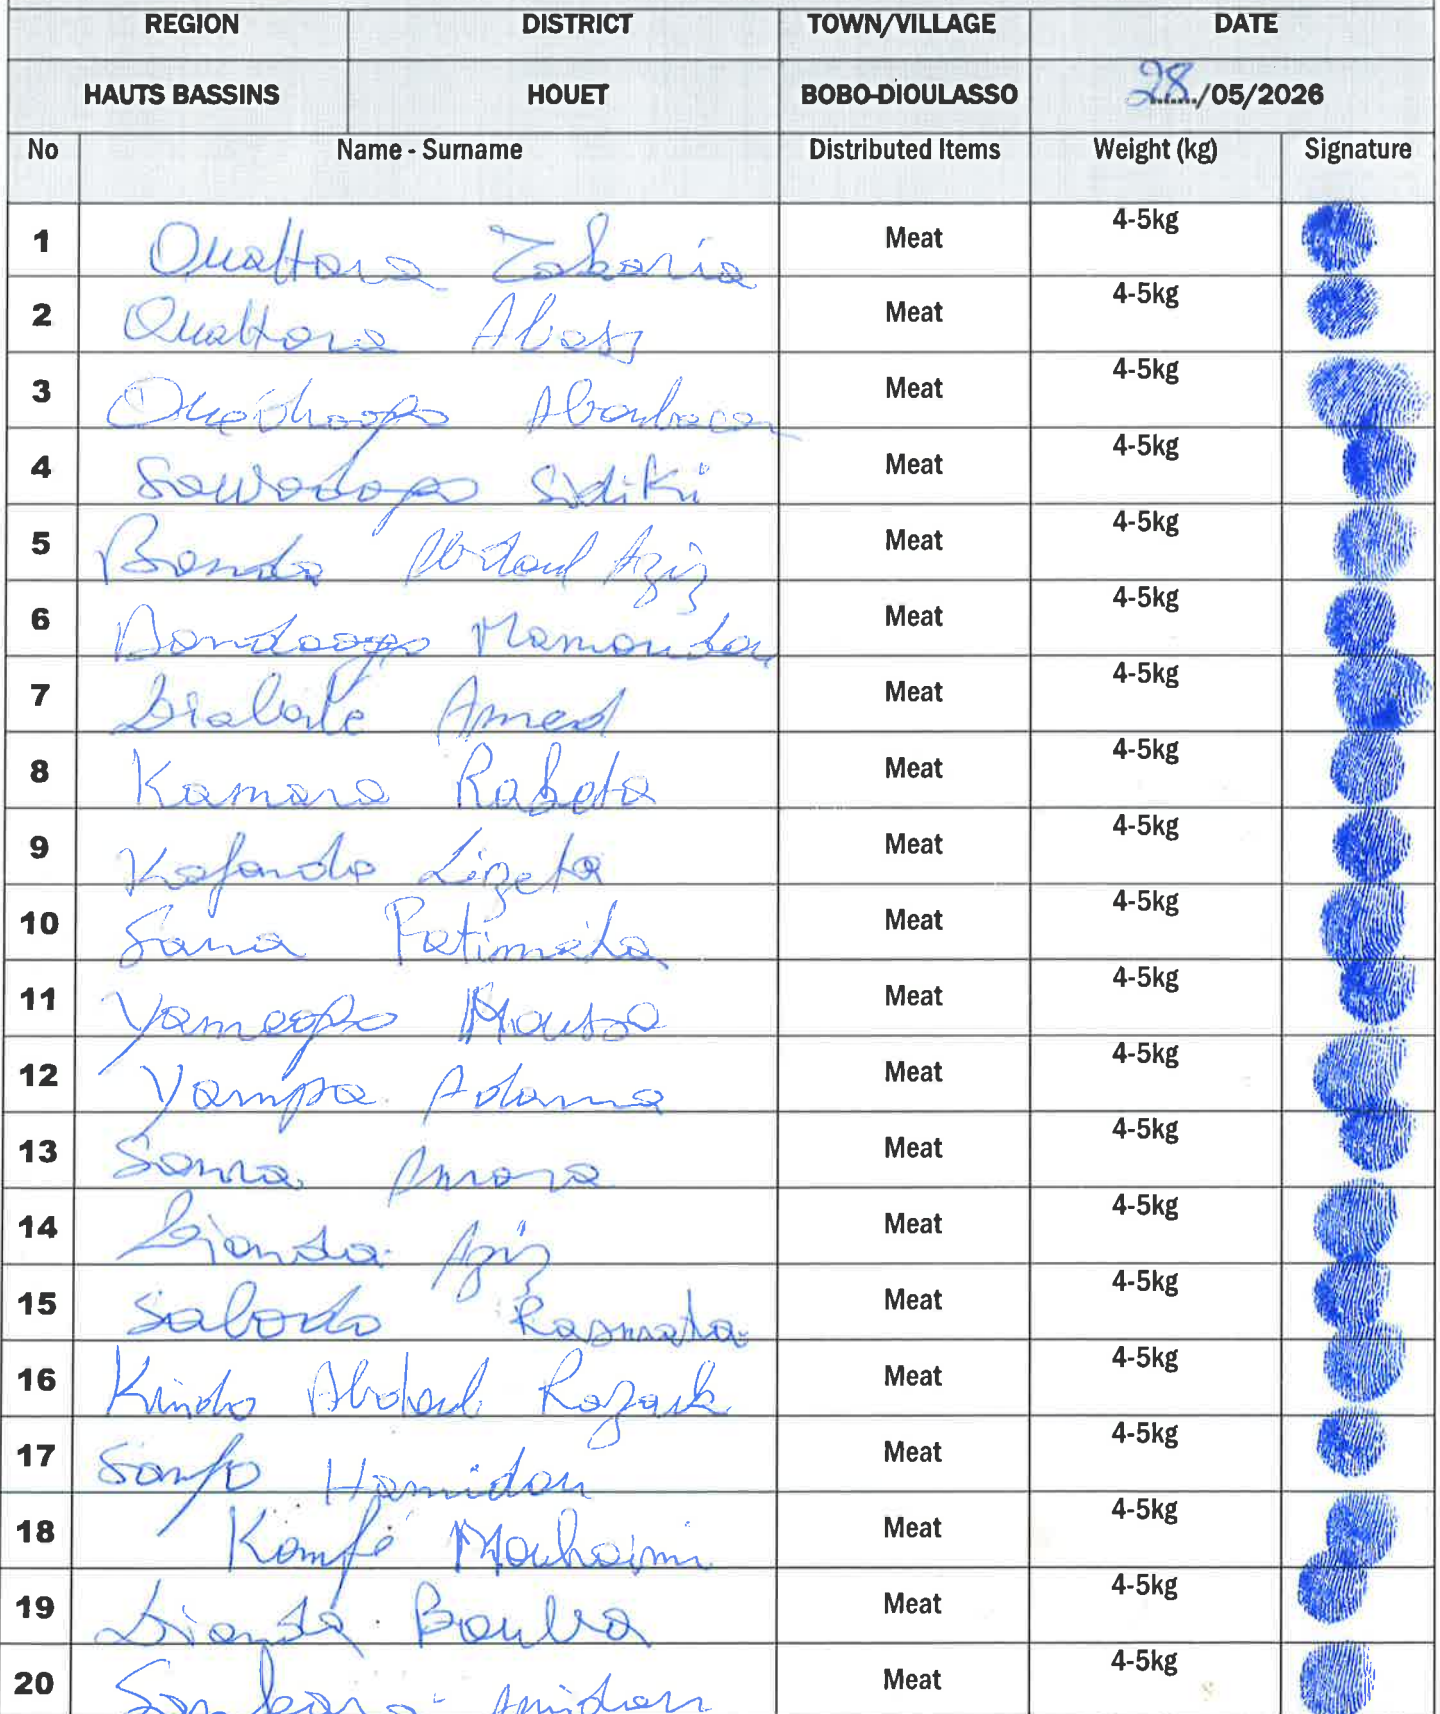 REGION DISTRICT TOWN/VILLAGE DATE
HAUTS BASSINS HOUET BOBO-DIOULASSO 28/05/2026
No Name - Surname Distributed Items Weight (kg) Signature
1 Ouattara Zakaria Meat 4-5kg
2 Ouattara Abass Meat 4-5kg
3 Ouédraogo Aboubacar Meat 4-5kg
4 Sawadogo Sidiki Meat 4-5kg
5 Banda Abdoul Aziz Meat 4-5kg
6 Bandaogo Mamoudou Meat 4-5kg
7 Diabaté Amed Meat 4-5kg
8 Kamara Rabeta Meat 4-5kg
9 Kafando Lizeta Meat 4-5kg
10 Sana Fatimata Meat 4-5kg
11 Yameogo Moussa Meat 4-5kg
12 Yampa Adama Meat 4-5kg
13 Sanra Amara Meat 4-5kg
14 Dianda Aziz Meat 4-5kg
15 Sabodo Rasmata Meat 4-5kg
16 Kindo Abdoul Razack Meat 4-5kg
17 Sanfo Hamidou Meat 4-5kg
18 Kamfé Mouhaimi Meat 4-5kg
19 Dianda Bouba Meat 4-5kg
20 Sankara Amidou Meat 4-5kg